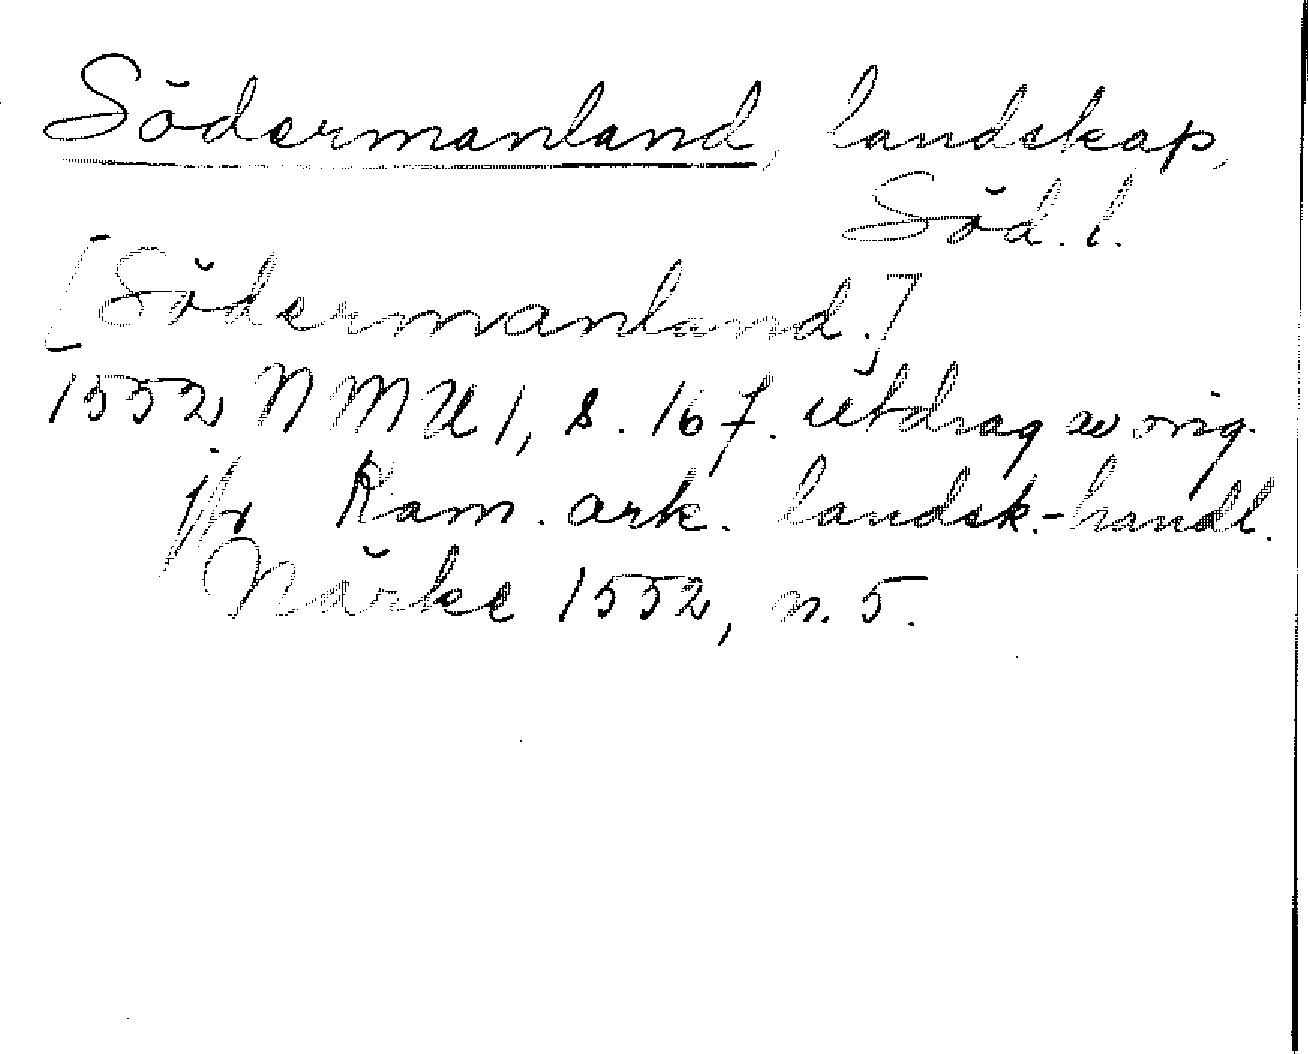 Södermanland, landskap,
Söd. l.
[Södermanland.]
1552 NMU 1, s. 167. utdrag av orig.
jfr Kam. ark. landsk.-handl.
Närke 1552, n. 5.